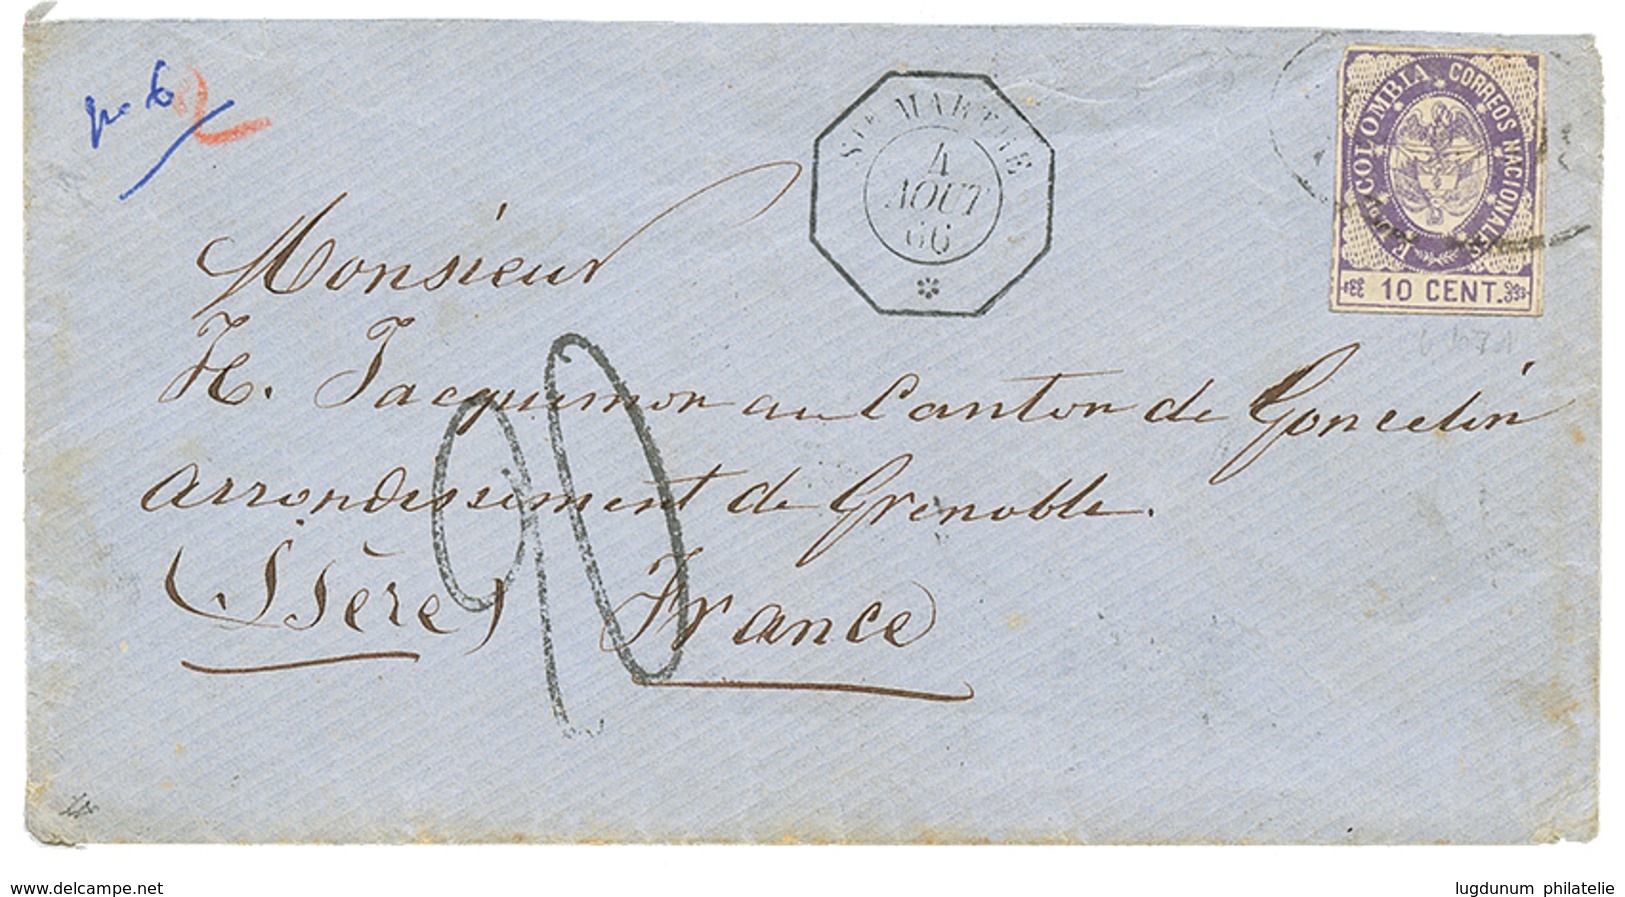 no 6
2
STE MARTHE
4
AOUT
66
COLOMBIA CORREOS NACIONALES
E.U. DE
10 CENT.
Monsieur
H. Jacquemon au Canton de Goncelin
arrondissement de Grenoble.
(Isère) France
90
www.delcampe.net
lugdunum philatelie